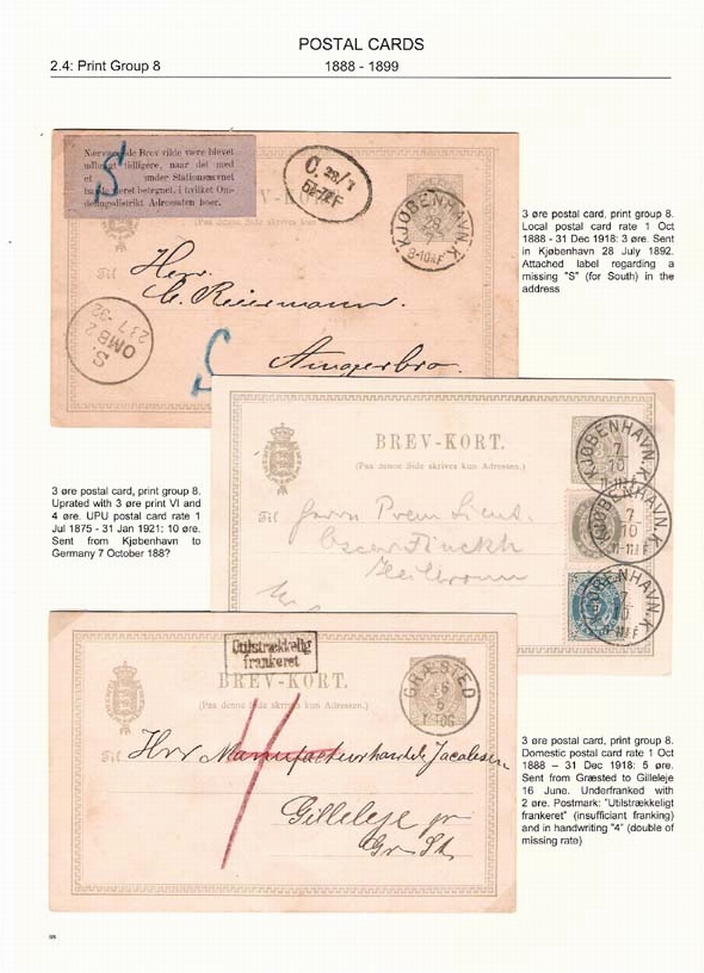 POSTAL CARDS
2.4: Print Group 8
1888 - 1899
Nærværende Brev vilde være blevet
udbragt tidligere, naar det med
et S under Stationsnavnet
havde været betegnet, i hvilket Om-
delingsdistrikt Adressaten boer.
C. 28/7
KJØBENHAVN. K.
28
7
3 øre postal card, print group 8.
Local postal card rate 1 Oct
1888 - 31 Dec 1918: 3 øre. Sent
in Kjøbenhavn 28 July 1892.
Attached label regarding a
missing "S" (for South) in the
address
Til
Herr
S.
OMB 2
S
BREV-KORT.
(Paa denne Side skrives kun Adressen.)
KJØBENHAVN. K.
7
10
KJØBENHAVN. K.
7
10
11-11½ F
KJØBENHAVN. K.
7
10
11-11½ F
Til
Herrn Prem Lieut.
Oscar Finckh
Heilbronn
3 øre postal card, print group 8.
Uprated with 3 øre print VI and
4 øre. UPU postal card rate 1
Jul 1875 - 31 Jan 1921: 10 øre.
Sent from Kjøbenhavn to
Germany 7 October 188?
Utilstrækkelig
frankeret
BREV-KORT.
(Paa denne Side skrives kun Adressen.)
GRÆSTED
16
6
1 TOG
4
Til Hrr Manufacturhandler Jacobsen
Gilleleje pr
Gr. St.
3 øre postal card, print group 8.
Domestic postal card rate 1 Oct
1888 – 31 Dec 1918: 5 øre.
Sent from Græsted to Gilleleje
16 June. Underfranked with
2 øre. Postmark: "Utilstrækkeligt
frankeret" (insufficiant franking)
and in handwriting "4" (double of
missing rate)